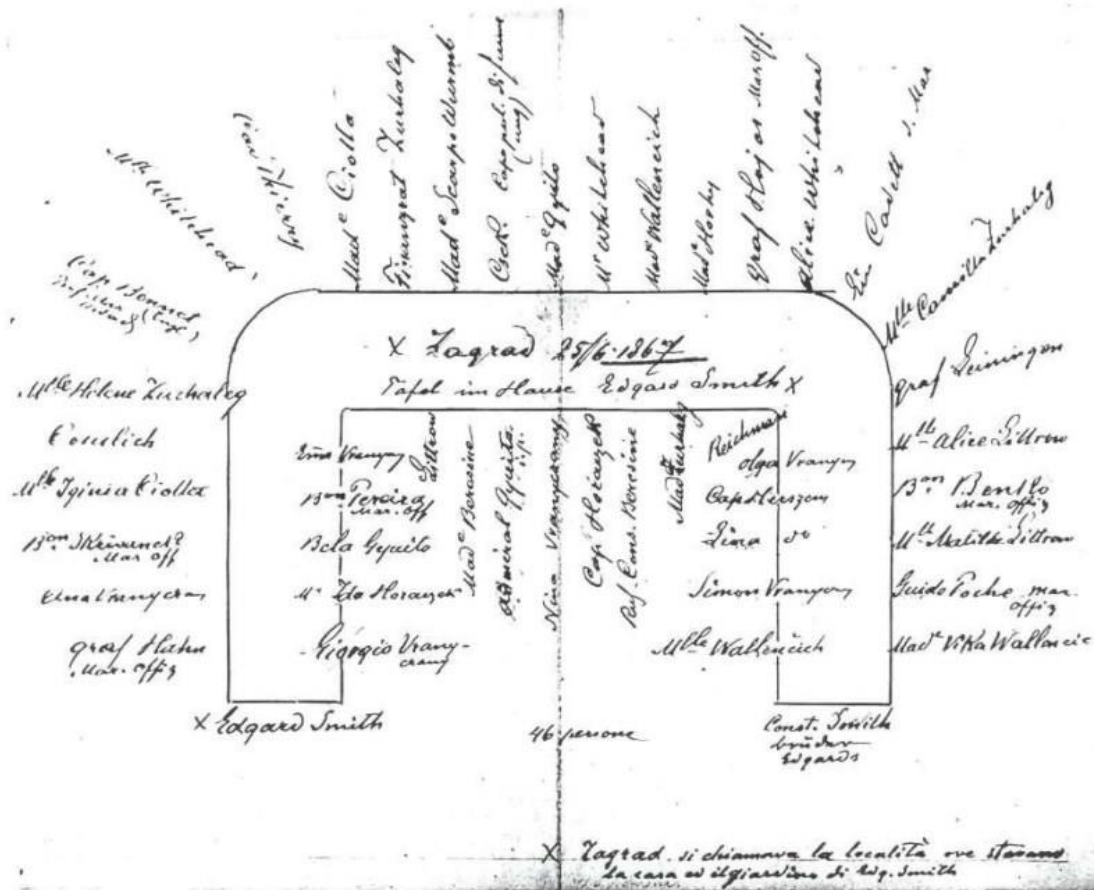 Mlle Whitehead
Made Ciotta
Finanzrat Zuchaleg
Made Scarpa Wurmb
Made Gyuito
Mr Whitehead
Made Wallencich
Made Hoshy
Graf Hoyos Mar off.
Alice Whitehead
Mlle Camilla Zuchaleg
Cap. Bonnel
X Zagrad 25/6·1867
Tafel im Hause Edgard Smith X
Mlle Helene Zuchaleg
Cosulich
Mlle Iginia Ciotta
Bon
Mar. Off
Graf Hahn
Mar. offiz
Littrow
Bon Pereira
Mar. Off
Bela Gyuito
Mr. Ida Horaczek
Giorgio Vrany-
czany
Made Beresine
Admiral Gyuito
Nina Vranyczany
Cap. Horaczek
Cons. Beresine
Reichman
Olga Vranyczany
Simon Vranyczany
Mlle Wallencich
Graf Leiningen
Mlle Alice Littrow
Bon Benko
Mar. Offiz
Mlle Matilde Littrow
Guido Poche mar.
offiz
Made Vika Wallencic
X Edgard Smith
46 persone
Const. Smith
bruder
Edgards
X Zagrad si chiamava la località ove stavano
la casa ed il giardino di Edg. Smith